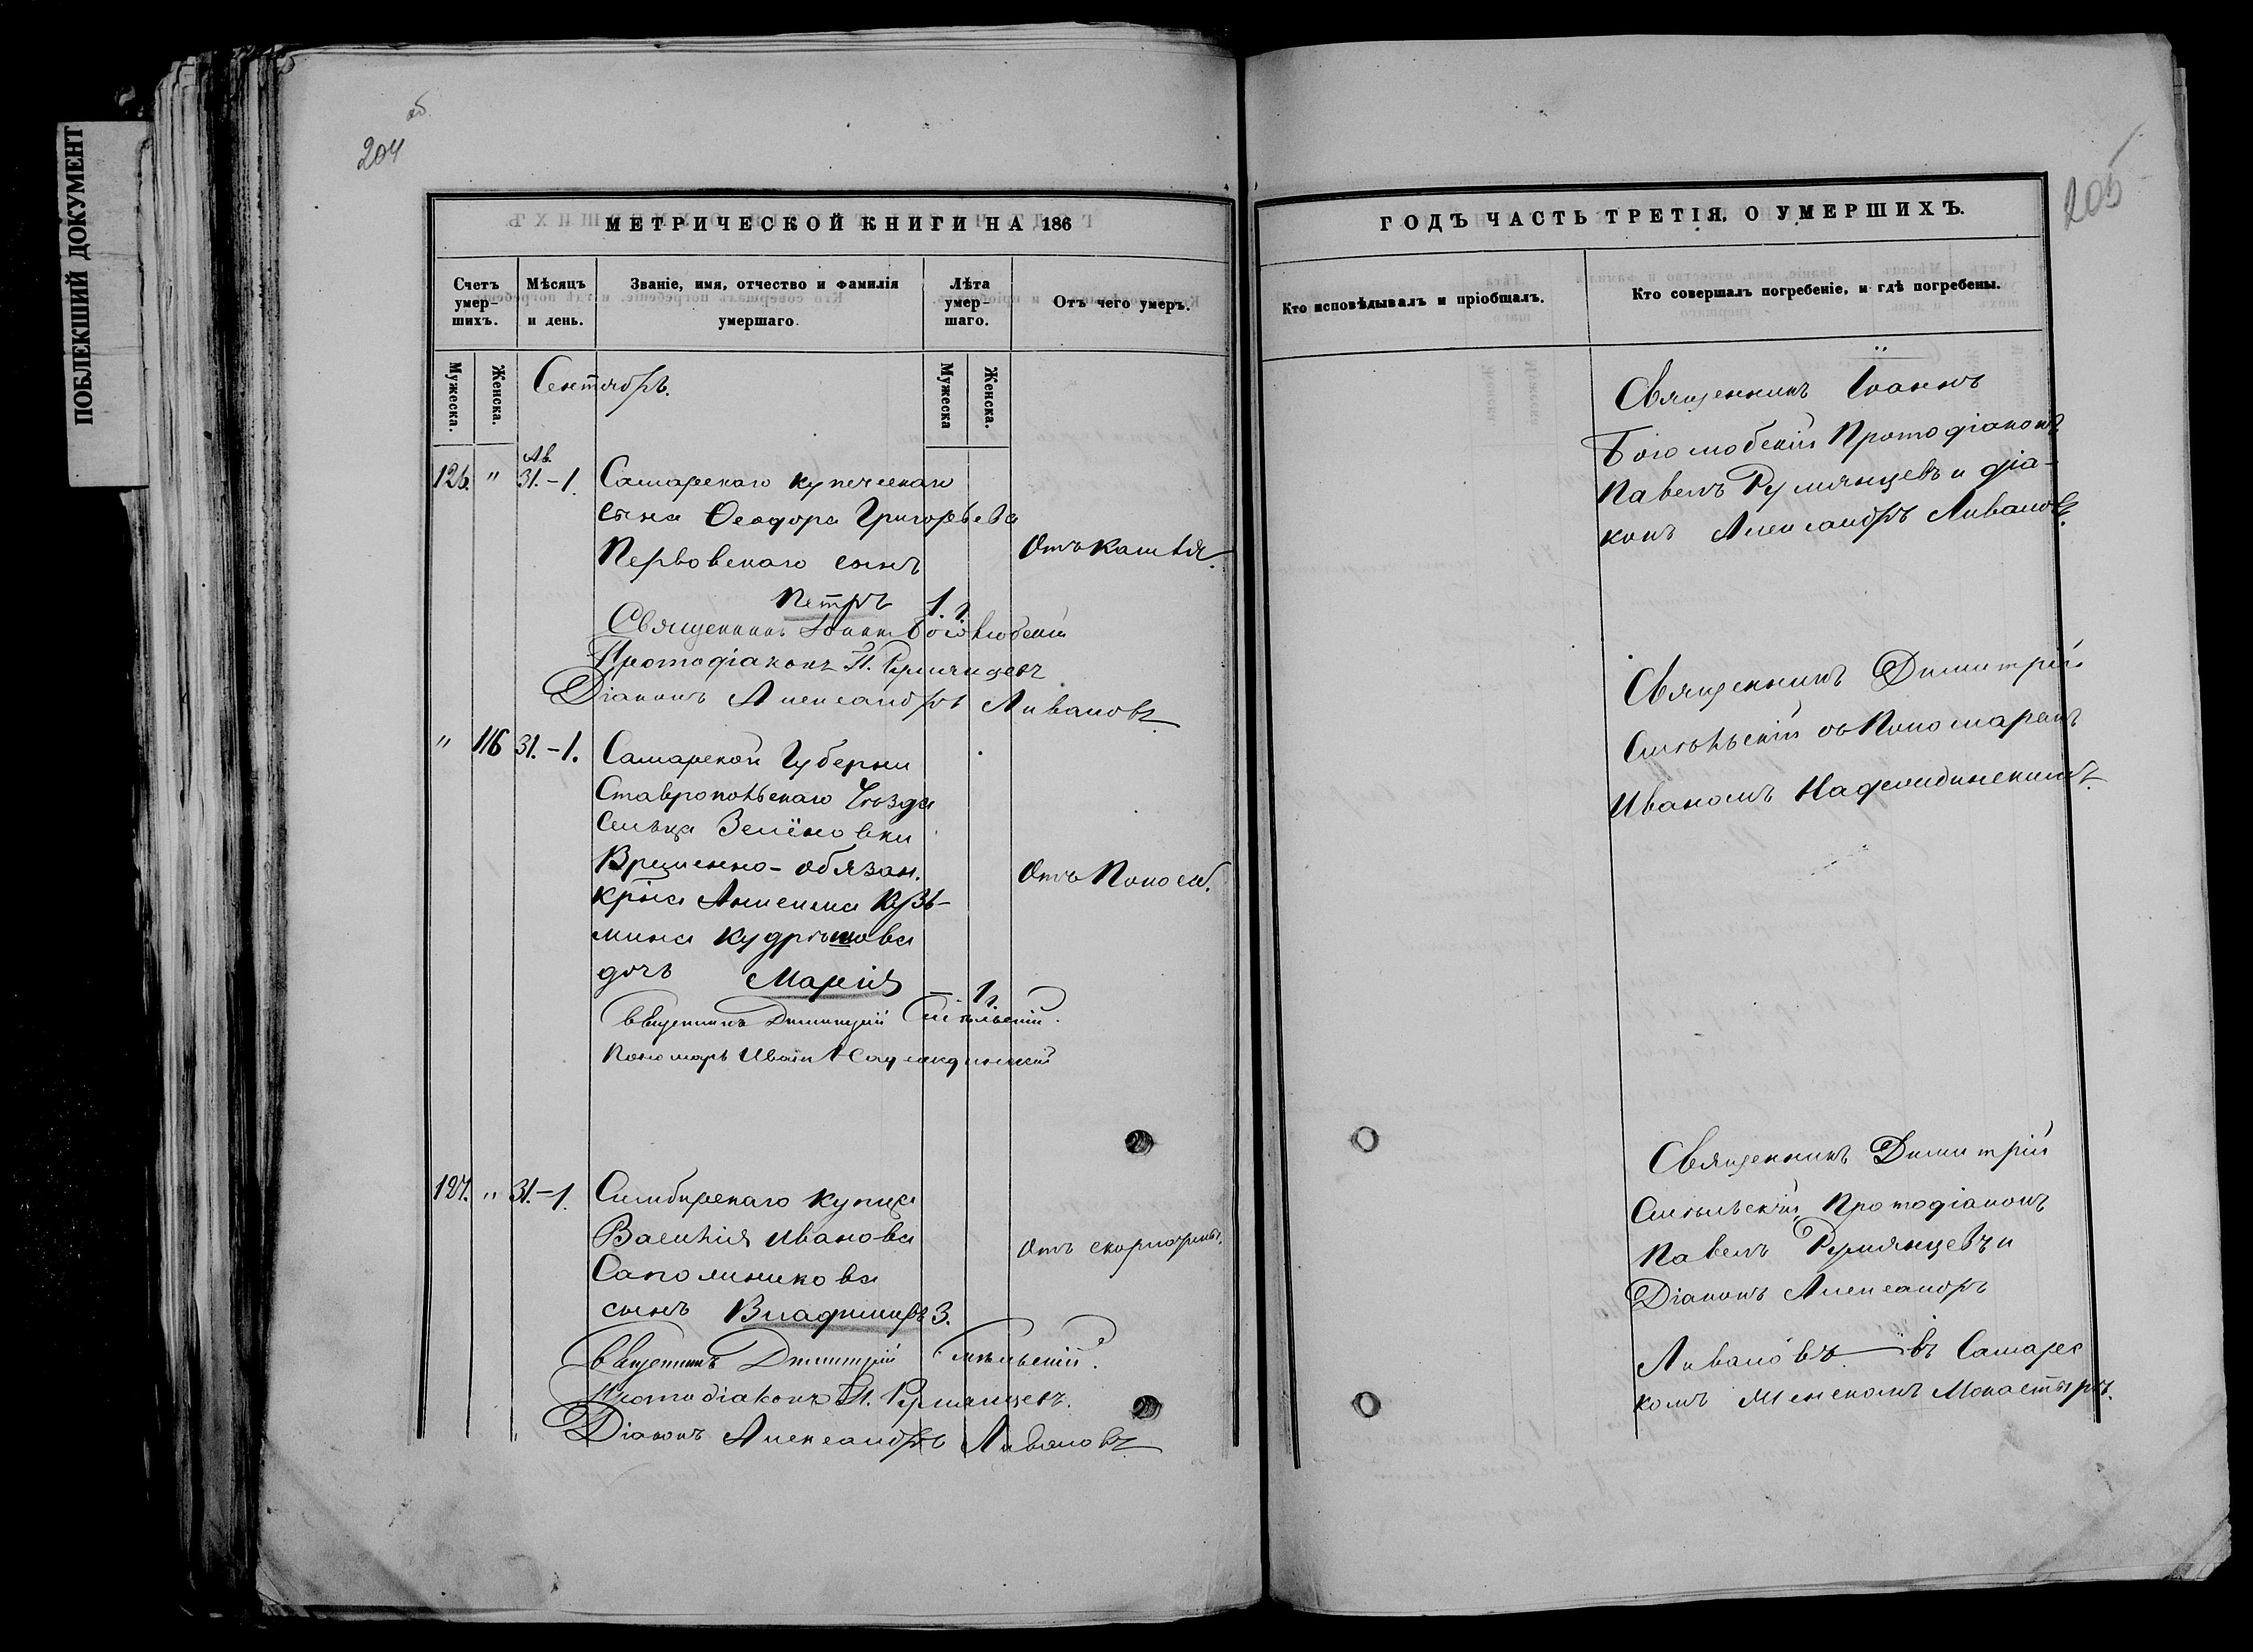 ПОБЛЕКШИЙ ДОКУМЕНТ
204 об
МЕТРИЧЕСКОЙ КНИГИ НА 186
Счетъ умер-шихъ.
Мѣсяцъ и день.
Званіе, имя, отчество и фамилія умершаго.
Лѣта умер-шаго.
Отъ чего умеръ.
Мужеска.
Женска.
Сентябрь.
Мужеска
Женска.
126. " Ав. 31.-1. Самарскаго купеческаго
сына Ѳеодора Григорьева
Первовскаго сынъ
Отъ кашля.
Петръ 1. г.
Священникъ Іоаннъ Боголюбскій
Протодіаконъ П. Румянцевъ
Діаконъ Александръ Ливановъ
" 116 31.-1. Самарской Губерни
Ставропольскаго Уѣзда
Сельца Зелёновки
Временно-обязан.
Отъ Поноса.
крна Алексея Кузь-
мина Кудряшова
дочь Марія – 1 г.
Священникъ Димитрій Смѣльскій.
Пономарь Иванъ
127. " 31.-1. Симбирскаго купца
Василія Иванова
Отъ скарлатины.
Сапожникова
сынъ Владиміръ 3.
Священникъ Димитрій Смѣльскій.
Протодіаконъ П. Румянцевъ.
Діаконъ Александръ Ливановъ
205
ГОДЪ ЧАСТЬ ТРЕТІЯ, О УМЕРШИХЪ.
Кто исповѣдывалъ и пріобщалъ.
Кто совершалъ погребеніе, и гдѣ погребены.
Священникъ Іоаннъ
Боголюбскій Протодіаконъ
Павелъ Румянцевъ и діа-
конъ Александръ Ливановъ.
Священникъ Димитрій
Смѣльскій съ Пономаремъ
Иваномъ
Священникъ Димитрій
Смѣльскій, Протодіаконъ
Павелъ Румянцевъ и
Діаконъ Александръ
Ливановъ. – въ Самарс
комъ Женскомъ Монастырѣ.